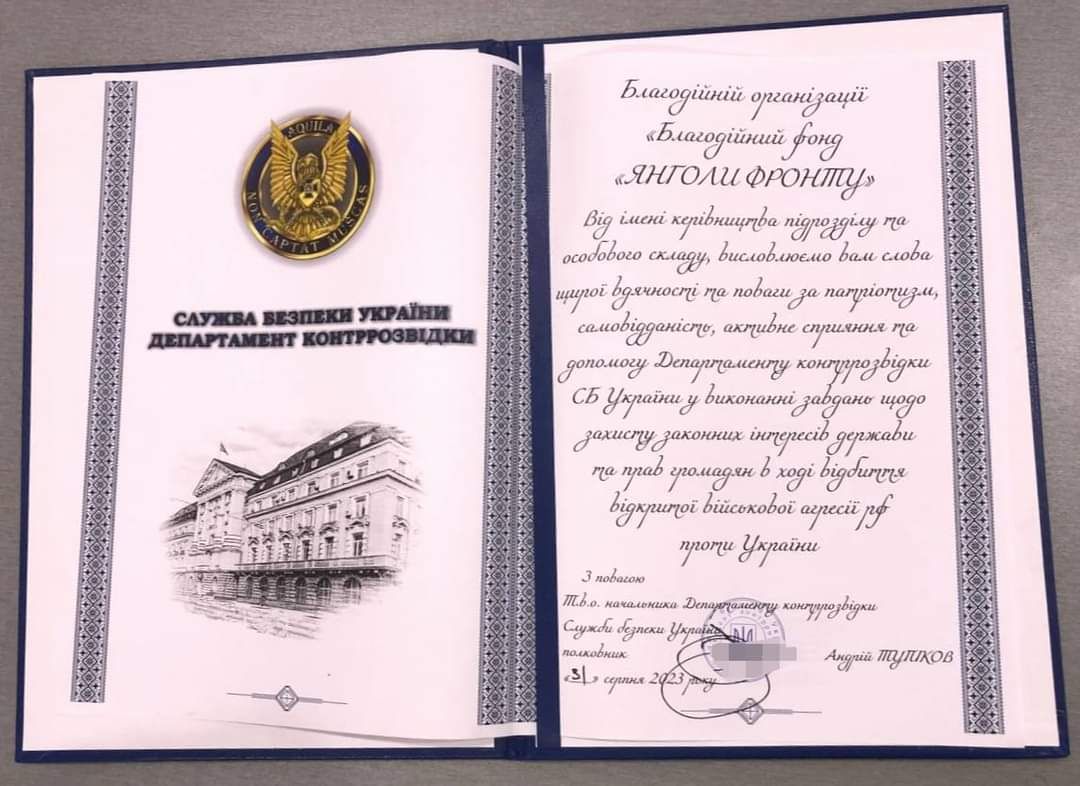 AQUILA
NON CAPTAT MUSCAS
СЛУЖБА БЕЗПЕКИ УКРАЇНИ
ДЕПАРТАМЕНТ КОНТРРОЗВІДКИ
Благодійній організації
«Благодійний фонд
«ЯНГОЛИ ФРОНТУ»
Від імені керівництва підрозділу та
особового складу, висловлюємо вам слова
щирої вдячності та поваги за патріотизм,
самовідданість, активне сприяння та
допомогу Департаменту контррозвідки
СБ України у виконанні завдань щодо
захисту законних інтересів держави
та прав громадян в ході відбиття
відкритої військової агресії рф
проти України
З повагою
Т.в.о. начальника Департаменту контррозвідки
Служби безпеки України
полковник Андрій ТУПІКОВ
«31» серпня 2023 року